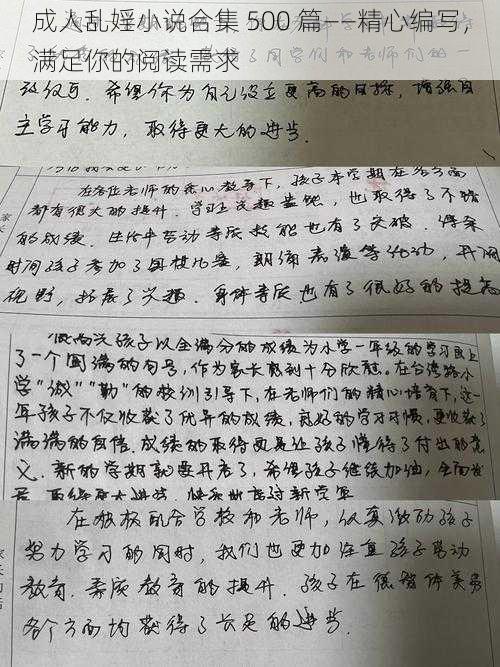 成人乱婬小说合集 500 篇——精心编写，
满足你的阅读需求
较仅可. 希望你为自己设立更高的目标, 增强自
主学习能力, 取得更大的进步.
在各位老师的精心教导下, 孩子本学期在各方面
都有很大的提升. 学习上兴趣盎然, 也取得了不错
的成绩. 生活中劳动等质技能也有了突破. 课余
时间孩子参加了围棋比赛, 朗诵表演等活动, 开阔
视野, 拓展了兴趣. 身体素质也有了很好的提高
很高兴孩子以全满分的成绩为小学一年级的学习画上
了一个圆满的句号, 作为家长感到十分欣慰. 在台
学"诚""勤"的校训引导下, 在老师们的精心培育下, 这一
年孩子不仅收获了优异的成绩, 良好的学习习惯, 更收获了
满满的自信. 成绩的取得更是让孩子懂得了付出的意
义. 新的学期就要开启了, 希望孩子继续加油, 全面发
展
在积极配合学校和老师, 反复激励孩子
努力学习的同时, 我们也更加注重孩子劳动
教育. 素质教育的提升. 孩子在德智体美劳
各个方面均获得了长足的进步.